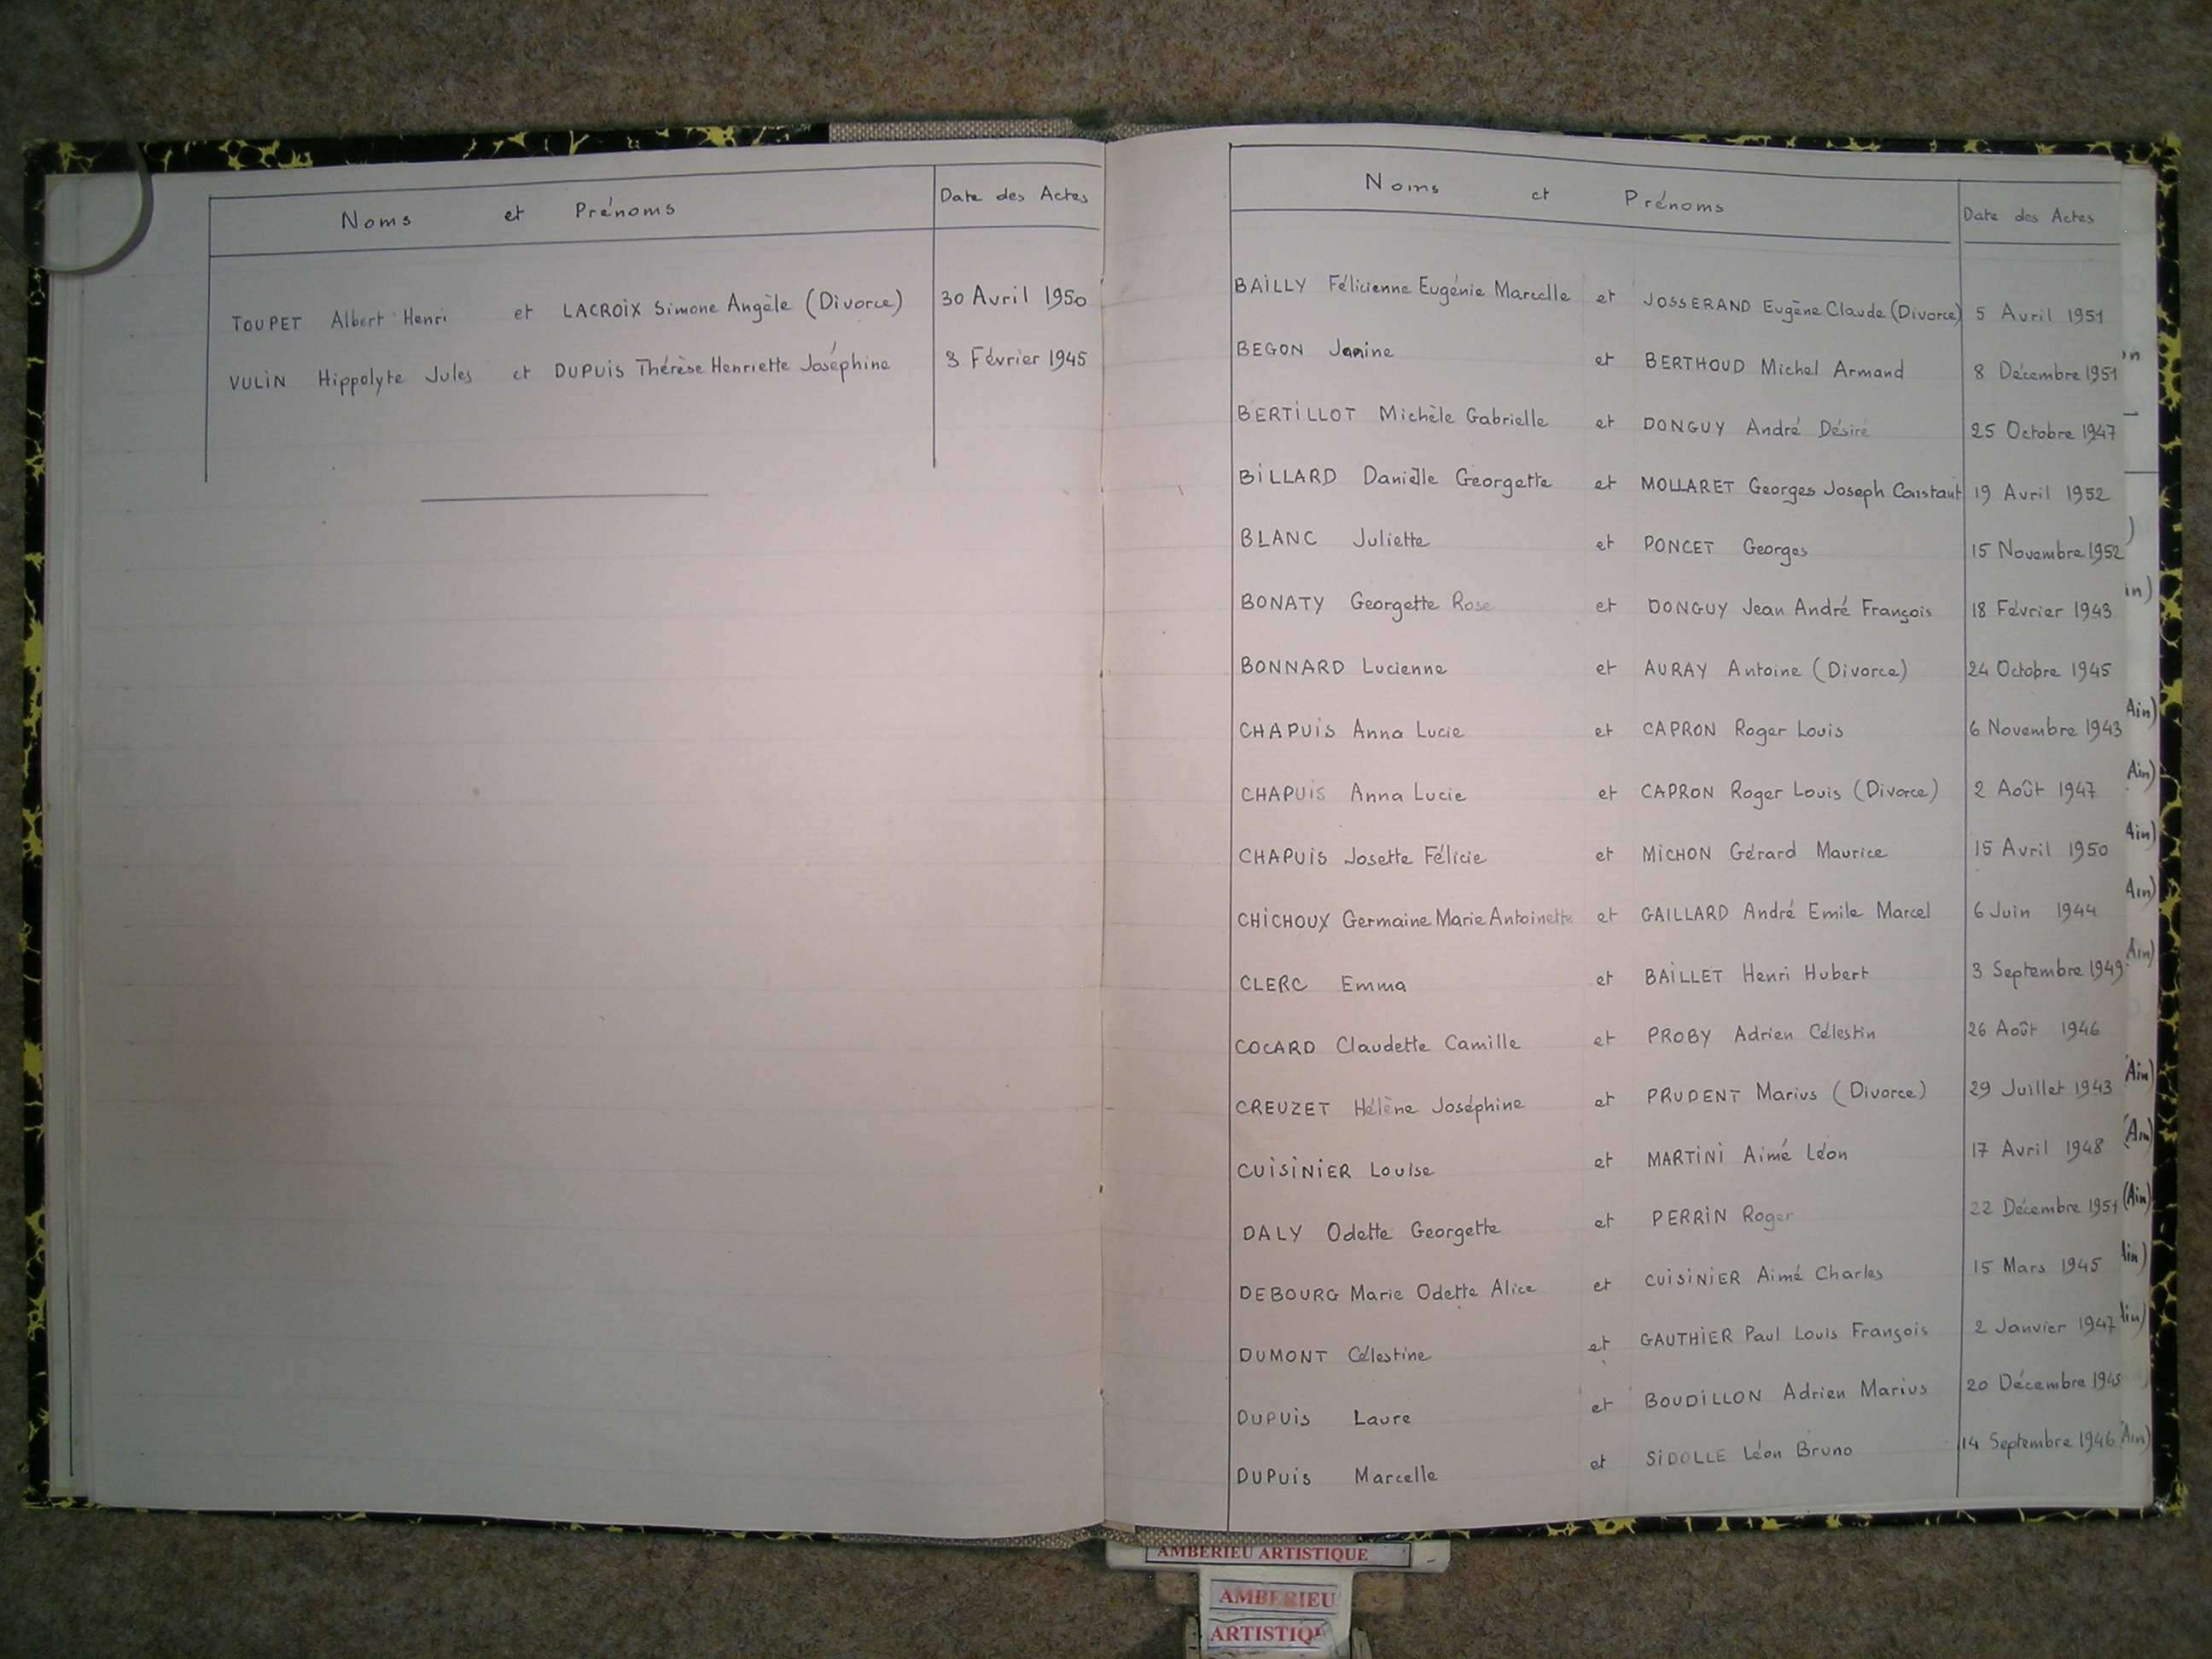 Noms et Prénoms Date des Actes
TOUPET Albert Henri et LACROIX Simone Angèle (Divorce) 30 Avril 1950
VULIN Hippolyte Jules et DUPUIS Thérèse Henriette Joséphine 3 Février 1945
Noms et Prénoms Date des Actes
BAILLY Félicienne Eugénie Marcelle et JOSSERAND Eugène Claude (Divorce) 5 Avril 1951
BEGON Janine et BERTHOUD Michel Armand 8 Décembre 1951
BERTILLOT Michèle Gabrielle et DONGUY André Désiré 25 Octobre 1947
BILLARD Danièlle Georgette et MOLLARET Georges Joseph Constant 19 Avril 1952
BLANC Juliette et PONCET Georges 15 Novembre 1952
BONATY Georgette Rose et DONGUY Jean André François 18 Février 1943
BONNARD Lucienne et AURAY Antoine (Divorce) 24 Octobre 1945
CHAPUIS Anna Lucie et CAPRON Roger Louis 6 Novembre 1943
CHAPUIS Anna Lucie et CAPRON Roger Louis (Divorce) 2 Août 1947
CHAPUIS Josette Félicie et MICHON Gérard Maurice 15 Avril 1950
CHICHOUX Germaine Marie Antoinette et GAILLARD André Emile Marcel 6 Juin 1944
CLERC Emma et BAILLET Henri Hubert 3 Septembre 1949
COCARD Claudette Camille et PROBY Adrien Célestin 26 Août 1946
CREUZET Hélène Joséphine et PRUDENT Marius (Divorce) 29 Juillet 1943
CUISINIER Louise et MARTINI Aimé Léon 17 Avril 1948
DALY Odette Georgette et PERRIN Roger 22 Décembre 1951 (Ain)
DEBOURG Marie Odette Alice et CUISINIER Aimé Charles 15 Mars 1945
DUMONT Célestine et GAUTHIER Paul Louis François 2 Janvier 1947
DUPUIS Laure et BOUDILLON Adrien Marius 20 Décembre
DUPUIS Marcelle et SIDOLLE Léon Bruno 14 Septembre 1946
AMBERIEU ARTISTIQUE
AMBERIEU
ARTISTIQU